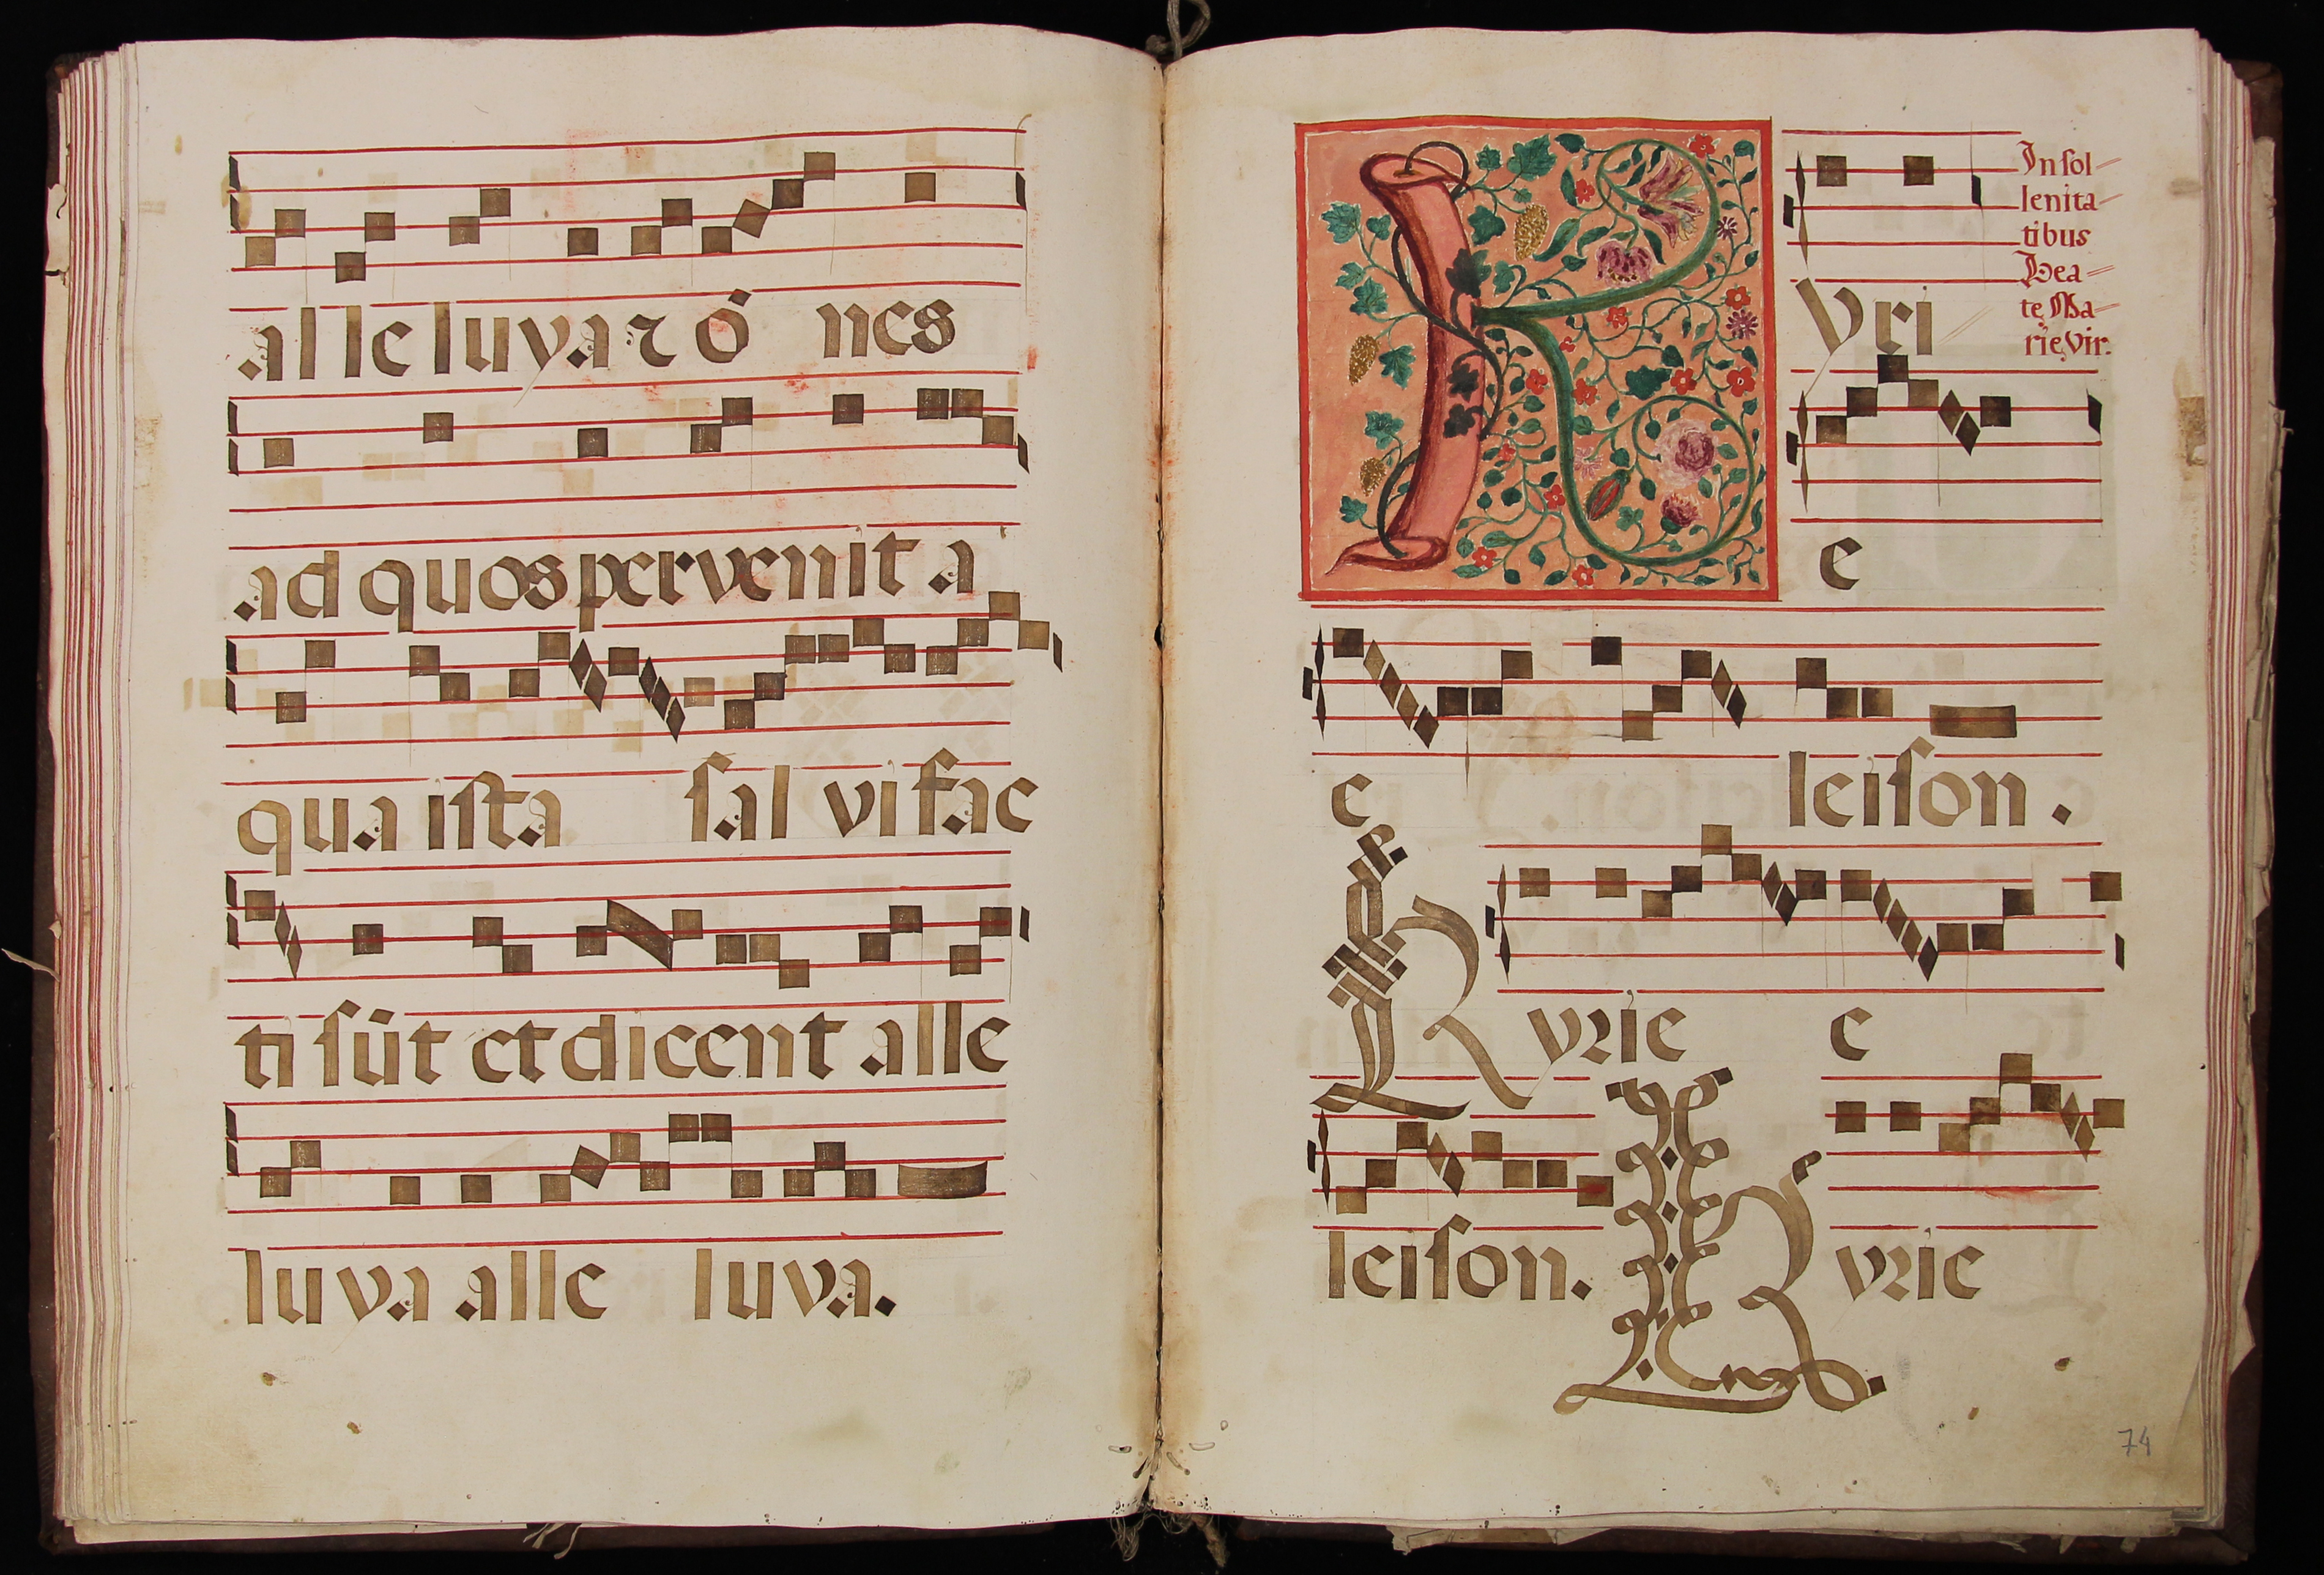 alleluya ⁊ ó nes
ad quos pervenit a
qua iſta ſal vi fac
ti ſūt et dicent alle
luva alle luva.
In ſol-
lenita-
tibus
Bea-
te Ma-
rie, Vir.
K yri
e
e leiſon.
Kyrie e
leiſon. Kyrie
74